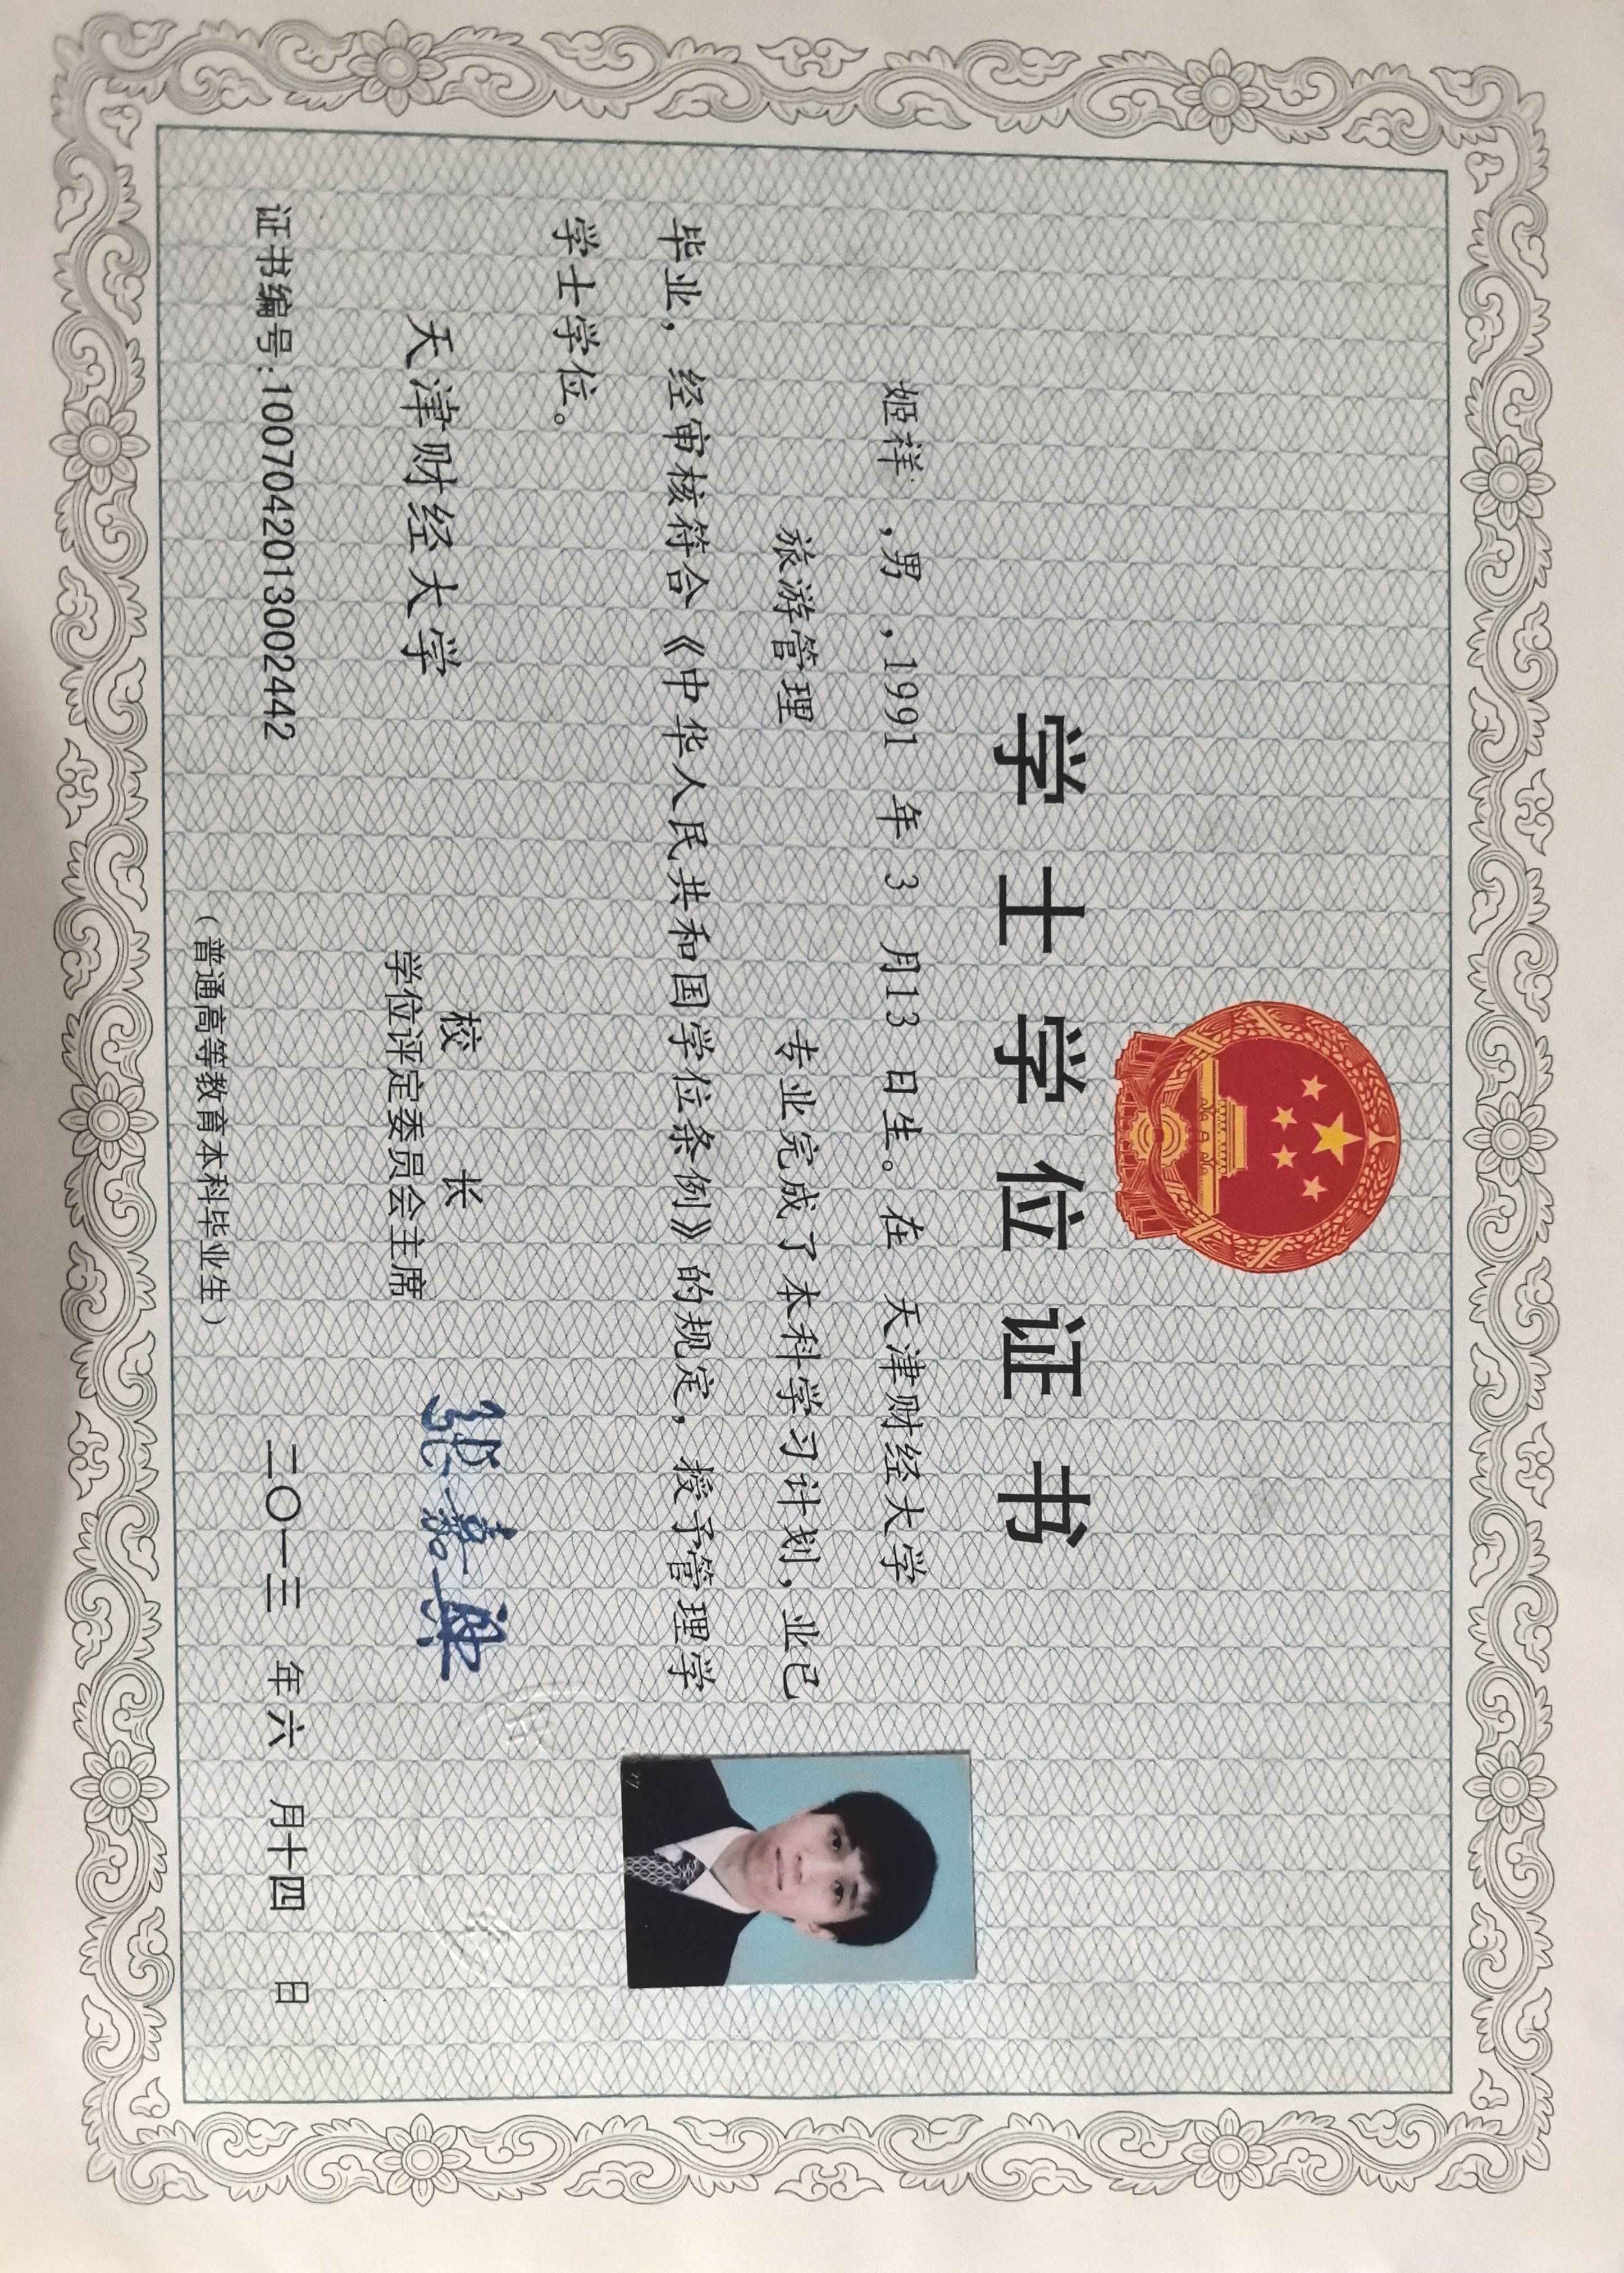 学士学位证书
姬祥 ,男 ,1991 年 3 月13 日生。在 天津财经大学
旅游管理 专业完成了本科学习计划，业已
毕业，经审核符合《中华人民共和国学位条例》的规定，授予管理学
学士学位。
天津财经大学
校 长
学位评定委员会主席
张嘉兴
证书编号:1007042013002442
二〇一三 年六 月十四 日
（普通高等教育本科毕业生）